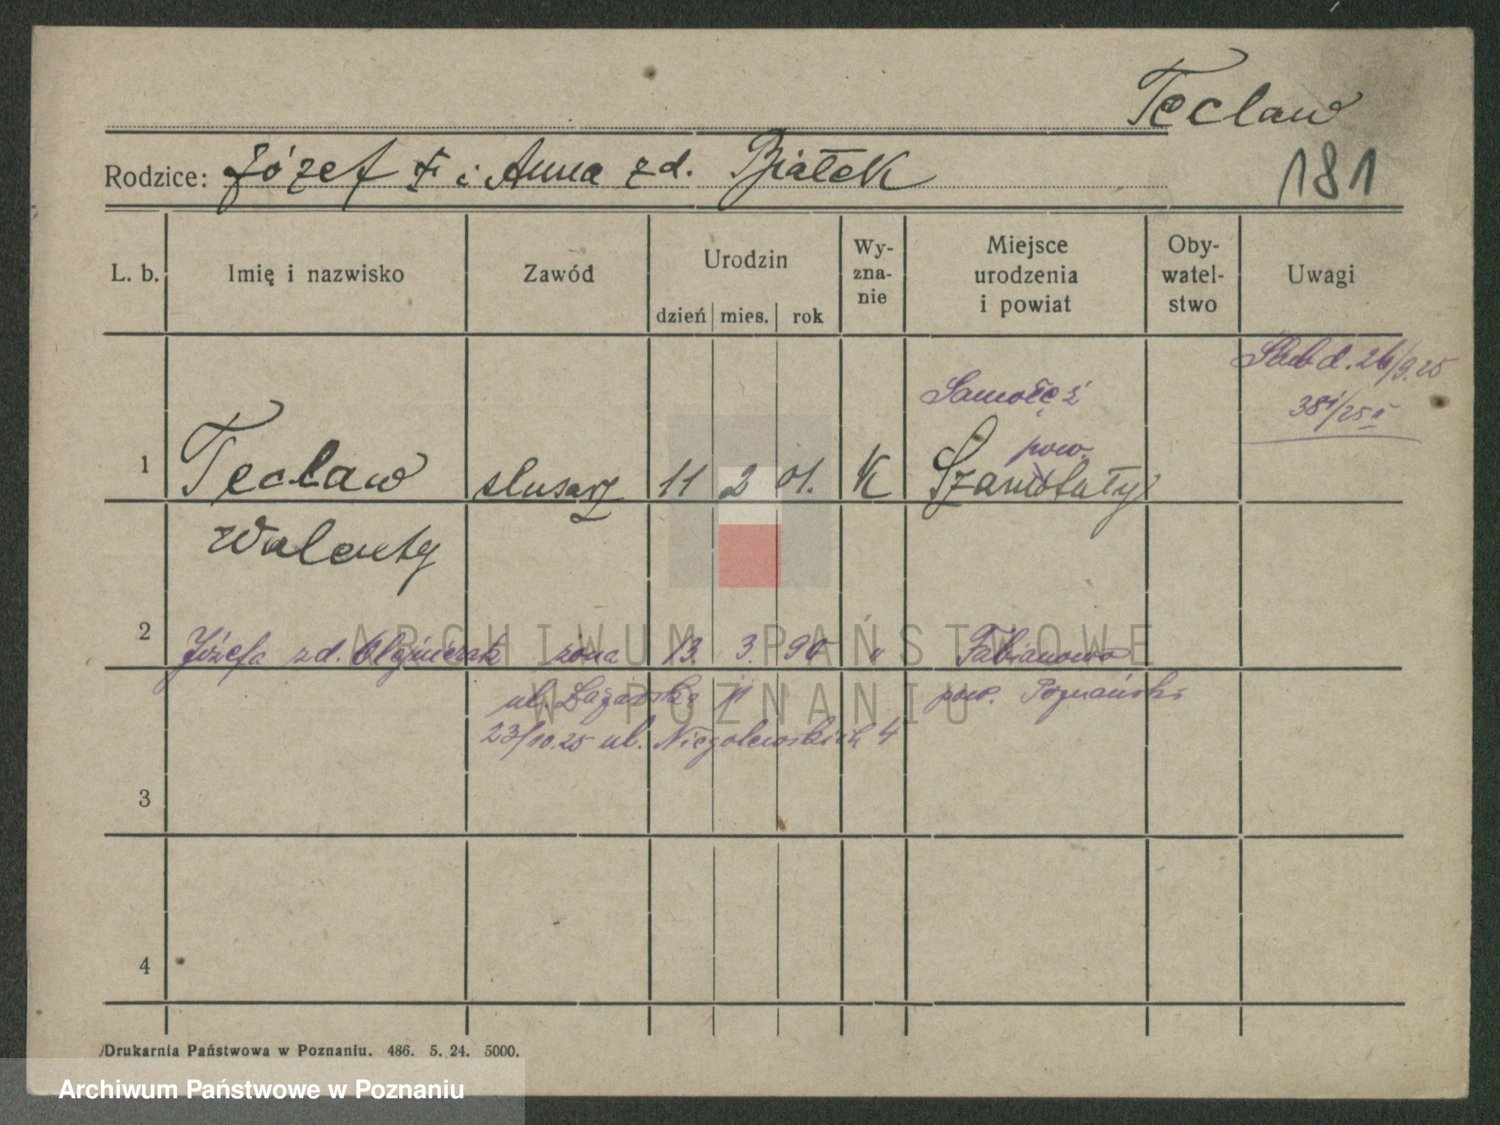 Tecław
Rodzice: Józef i Anna zd. Białek
181
L. b. Imię i nazwisko Zawód Urodzin Wy-zna-nie Miejsce urodzenia i powiat Oby-watel-stwo Uwagi
dzień mies. rok
Ślub d. 26/9.25
381/25 II
Samołęż
pow.
1 Tecław ślusarz 11 2 01. K Szamotuły
Walenty
2 Józefa zd. Olejniczak żona 13. 3. 90 " Fabianowo
ul. Łazarska pow. Poznański
23/10.25 ul. Niegolewskich 4
3
4
Drukarnia Państwowa w Poznaniu. 486. 5. 24. 5000.
ARCHIWUM PAŃSTWOWE
W POZNANIU
Archiwum Państwowe w Poznaniu